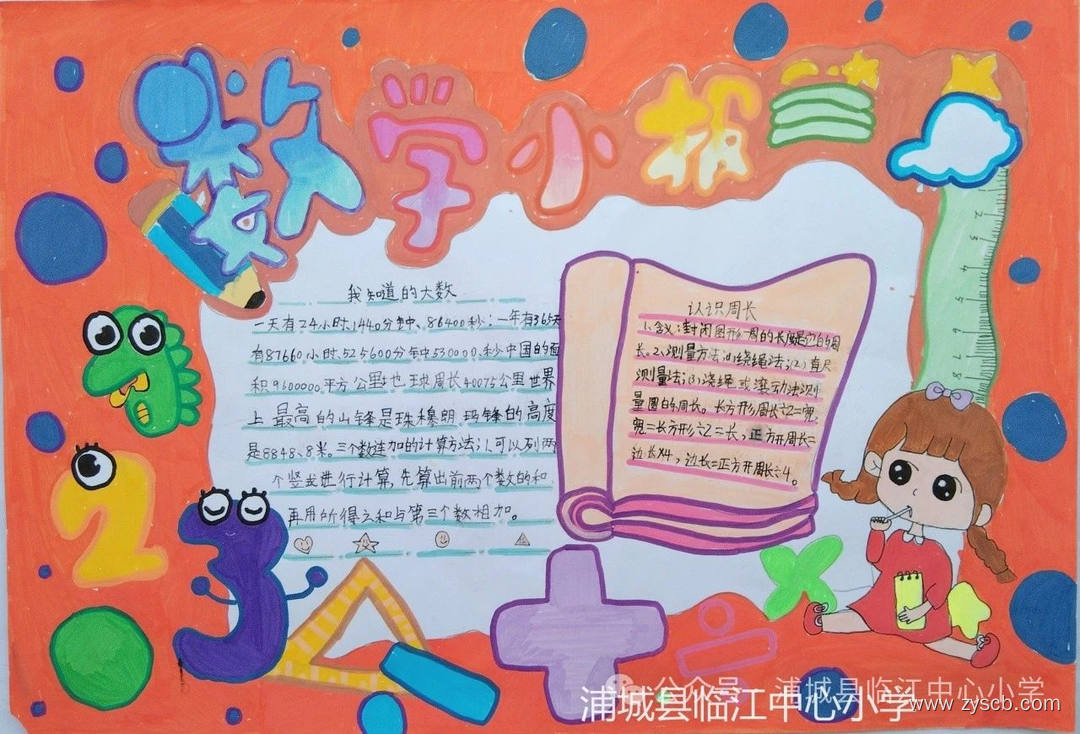 数学小报
我知道的大数
一天有24小时、1440分钟、86400秒;一年有365天
有87660小时525600分钟530000秒中国的面
积9600000平方公里地球周长40075公里世界
上最高的山锋是珠穆朗玛锋的高度
是8848.8米。三个数连加的计算方法:可以列两
个竖式进行计算,先算出前两个数的和
再用所得之和与第三个数相加。
认识周长
1.含义:封闭图形一周的长度是它的周
长。2.测量方法:(1)绕绳法;(2)直尺
测量法;(3)浇绳或滚动法测
量圆的周长。长方形周长÷2=宽,
宽=长方形÷2=长,正方开周长=
边长×4,边长=正方开周长÷4。
2
3
公众号 浦城县临江中心小学
浦城县临江中心小学
www.zyscb.com